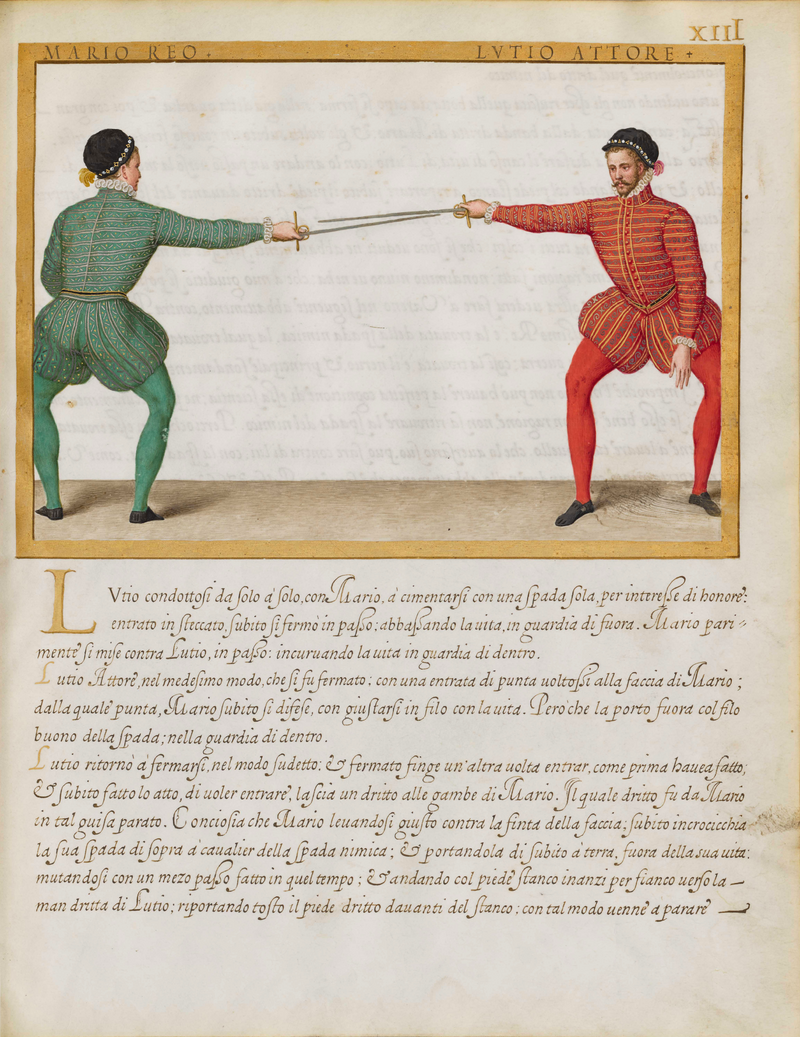 XIII
MARIO REO +
LVTIO ATTORE +
LVtio condottosi da solo à solo, con Mario, à cimentarsi con una spada sola, per interesse di honore:
entrato in steccato, subito si fermò in passo: abbassando la uita, in guardia di fuora. Mario pari=
mente si mise contra Lutio, in passo: incuruando la uita in guardia di dentro.
Lutio Attore, nel medesimo modo, che si fu fermato: con una entrata di punta uoltossi alla faccia di Mario;
dalla quale punta, Mario subito si difese, con giustarsi in filo con la uita. Però che la porto fuora col filo
buono della spada; nella guardia di dentro.
Lutio ritornò à fermarsi, nel modo sudetto: & fermato finge un'altra uolta entrar, come prima hauea fatto;
& subito fatto lo atto, di uoler entrare, lascia un dritto alle gambe di Mario. Il quale dritto fu da Mario
in tal guisa parato. Conciosia che Mario leuandosi giusto contra la finta della faccia; subito incrocicchia
la sua spada di sopra à caualier della spada nimica; & portandola di subito à terra, fuora della sua uita:
mutandosi con un mezo passo fatto in quel tempo; & andando col piede stanco inanzi per fianco uerso la
man dritta di Lutio; riportando tosto il piede dritto dauanti del stanco: con tal modo uenne a parare